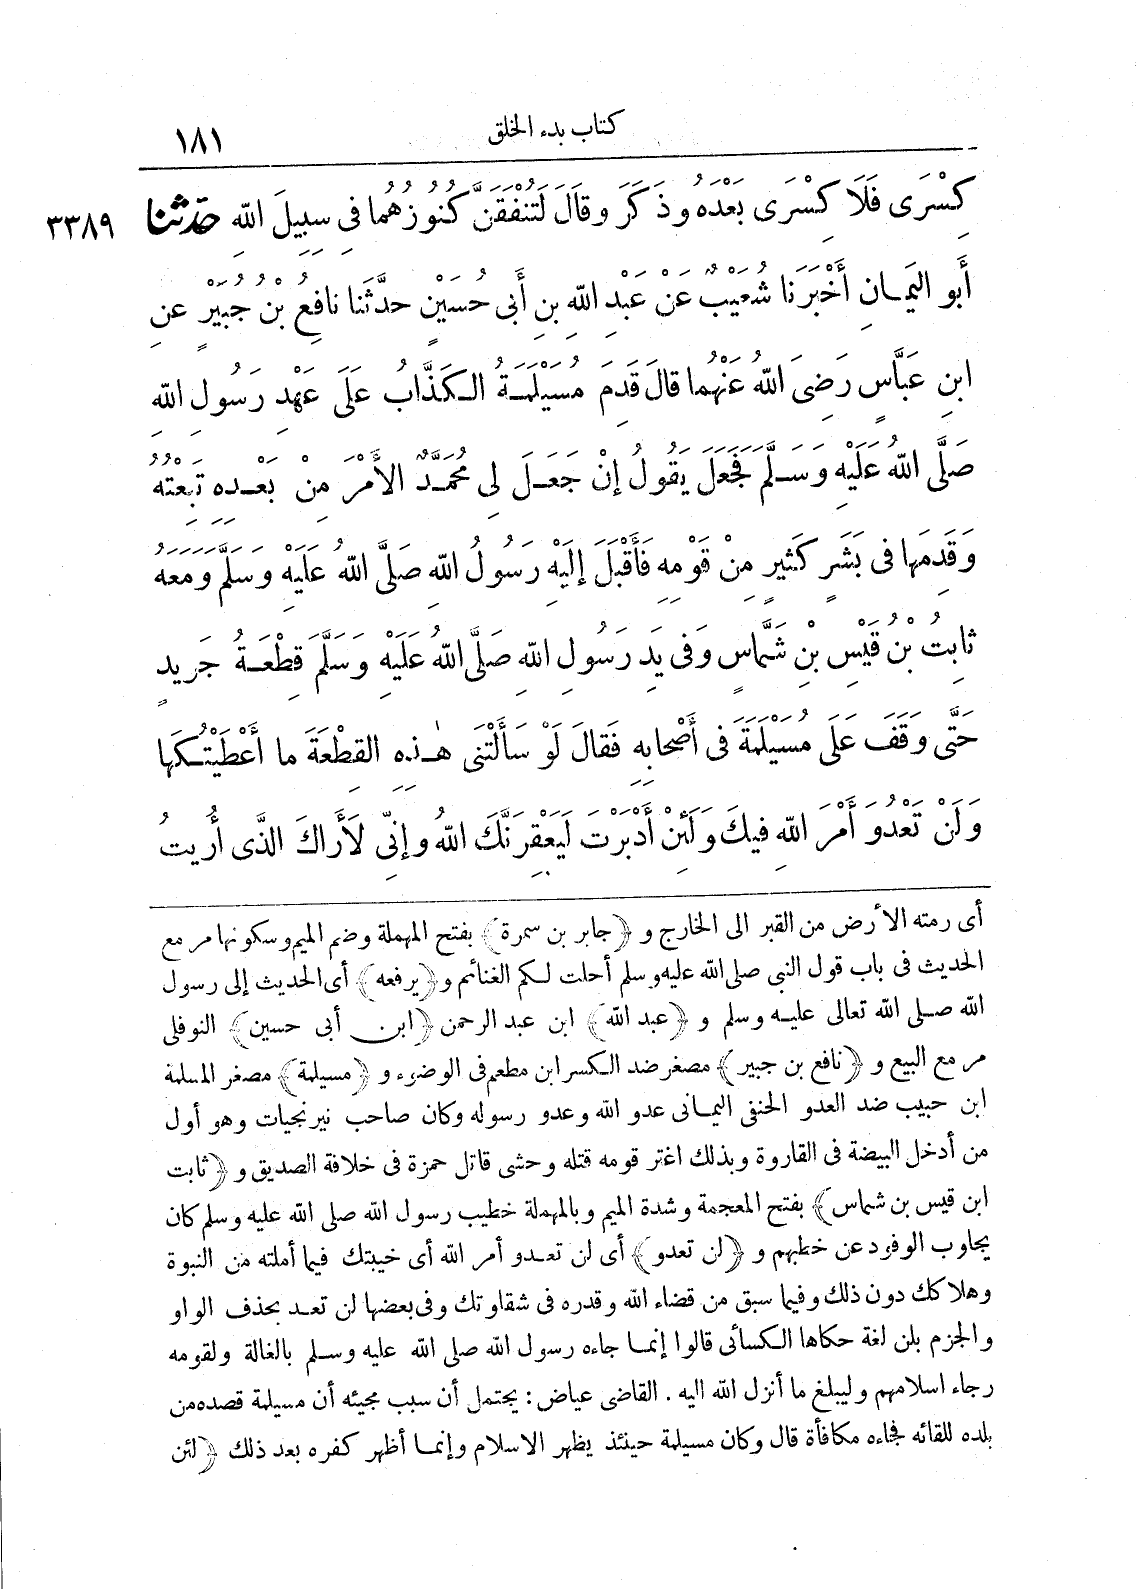 كتاب بدء الخلق ١٨١
كِسْرَى فَلَا كِسْرَى بَعْدَهُ وَذَكَرَ وَقَالَ لَتُنْفَقَنَّ كُنُوزُهُمَا فِى سَبِيلِ اللهِ حدثنا ٣٣٨٩
أَبُو الْيَمَانِ أَخْبَرَنَا شُعَيْبٌ عَنْ عَبْدِ اللهِ بنِ أَبِى حُسَيْنٍ حَدَّثَنَا نَافِعُ بْنُ جُبَيْرٍ عَنِ
ابنِ عَبَّاسٍ رَضِىَ اللهُ عَنْهُمَا قَالَ قَدِمَ مُسَيْلِمَةُ الْكَذَّابُ عَلَى عَهْدِ رَسُولِ اللهِ
صَلَّى اللهُ عَلَيْهِ وَسَلَّمَ فَجَعَلَ يَقُولُ إِنْ جَعَلَ لِى مُحَمَّدٌ الأَمْرَ مِنْ بَعْدِهِ تَبِعْتُهُ
وَقَدِمَهَا فِى بَشَرٍ كَثِيرٍ مِنْ قَوْمِهِ فَأَقْبَلَ إِلَيْهِ رَسُولُ اللهِ صَلَّى اللهُ عَلَيْهِ وَسَلَّمَ وَمَعَهُ
ثَابِتُ بْنُ قَيْسِ بْنِ شَمَّاسٍ وَفِى يَدِ رَسُولِ اللهِ صَلَّى اللهُ عَلَيْهِ وَسَلَّمَ قِطْعَةُ جَرِيدٍ
حَتَّى وَقَفَ عَلَى مُسَيْلِمَةَ فِى أَصْحَابِهِ فَقَالَ لَوْ سَأَلْتَنِى هٰذِهِ الْقِطْعَةَ مَا أَعْطَيْتُكَهَا
وَلَنْ تَعْدُوَ أَمْرَ اللهِ فِيكَ وَلَئِنْ أَدْبَرْتَ لَيَعْقِرَنَّكَ اللهُ وَإِنِّى لَأَرَاكَ الَّذِى أُرِيتُ
أى رمته الأرض من القبر الى الخارج و ﴿جابر بن سمرة﴾ بفتح المهملة وضم الميم وسكونها مر مع
الحديث فى باب قول النبى صلى الله عليه وسلم أحلت لكم الغنائم و ﴿يرفعه﴾ أى الحديث إلى رسول
الله صلى الله تعالى عليه وسلم و ﴿عبد الله﴾ ابن عبد الرحمن ﴿ابن أبى حسين﴾ النوفلى
مر مع البيع و ﴿نافع بن جبير﴾ مصغر ضد الكسر ابن مطعم فى الوضوء و ﴿مسيلمة﴾ مصغر المسلمة
ابن حبيب ضد العدو الحنفى اليمانى عدو الله وعدو رسوله وكان صاحب نيرنجيات وهو أول
من أدخل البيضة فى القاروة وبذلك اغتر قومه قتله وحشى قاتل حمزة فى خلافة الصديق و ﴿ثابت
ابن قيس بن شماس﴾ بفتح المعجمة وشدة الميم وبالمهملة خطيب رسول الله صلى الله عليه وسلم كان
يجاوب الوفود عن خطبهم و ﴿لن تعدو﴾ أى لن تعدو أمر الله أى خيبتك فيما أملته من النبوة
وهلاكك دون ذلك وفيما سبق من قضاء الله وقدره فى شقاوتك وفى بعضها لن تعد بحذف الواو
والجزم بلن لغة حكاها الكسائى قالوا إنما جاءه رسول الله صلى الله عليه وسلم بالغالة ولقومه
رجاء اسلامهم وليبلغ ما أنزل الله اليه . القاضى عياض : يحتمل أن سبب مجيئه أن مسيلمة قصده من
بلده للقائه فجاءه مكافأة قال وكان مسيلمة حينئذ يظهر الاسلام وإنما أظهر كفره بعد ذلك ﴿لئن